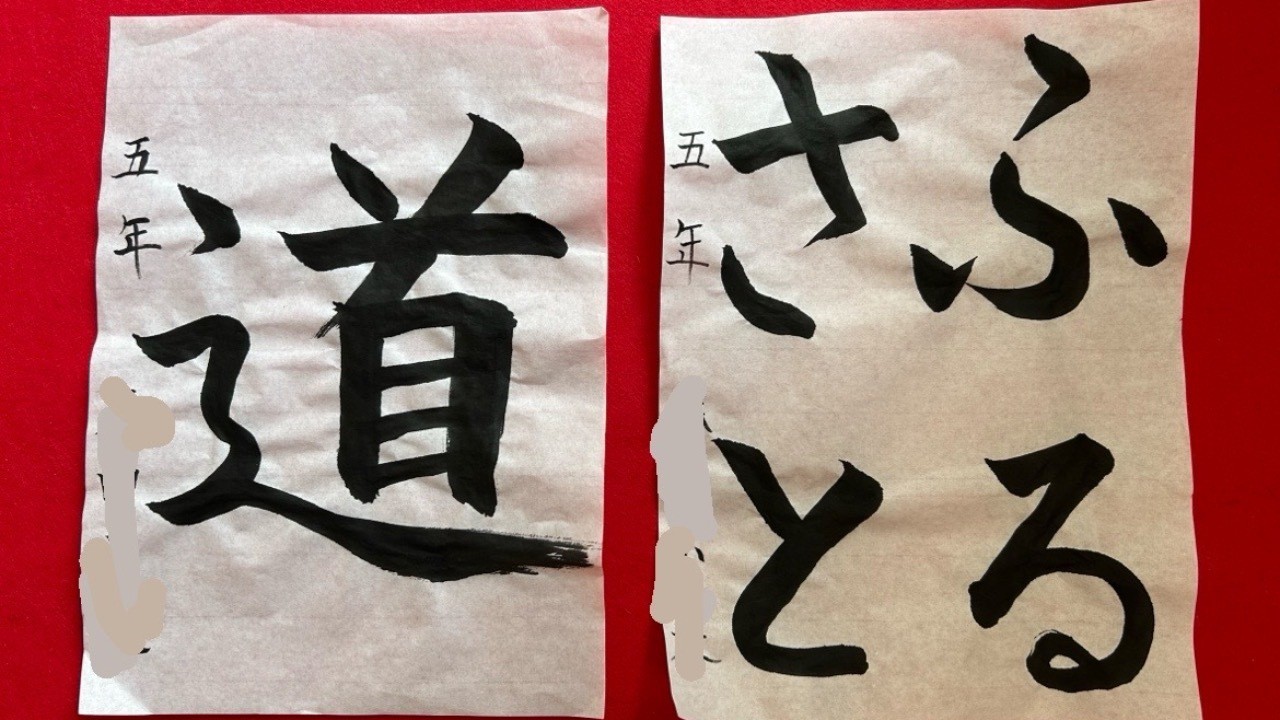 道
五年
ふる
さと
五年